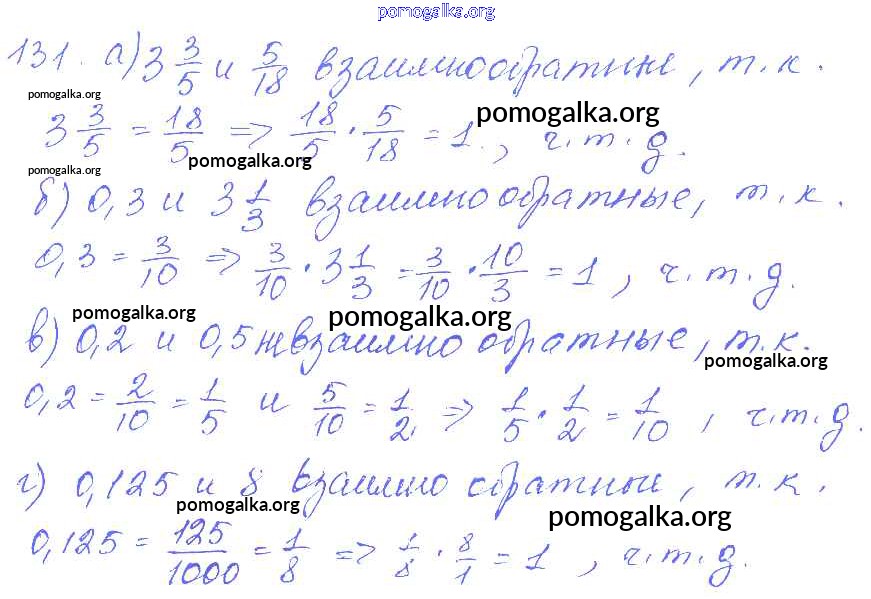 pomogalka.org
131. а) 3 3/5 и 5/18 взаимнообратные, т.к.
pomogalka.org
3 3/5 = 18/5 => 18/5 · 5/18 = 1., ч.т.д.
pomogalka.org
pomogalka.org
pomogalka.org
б) 0,3 и 3 1/3 взаимно обратные, т.к.
0,3 = 3/10 => 3/10 · 3 1/3 = 3/10 · 10/3 = 1, ч.т.д.
pomogalka.org
pomogalka.org
в) 0,2 и 0,5 не взаимно обратные, т.к.
pomogalka.org
0,2 = 2/10 = 1/5 и 5/10 = 1/2 => 1/5 · 1/2 = 1/10, ч.т.д.
г) 0,125 и 8 взаимно обратные, т.к.
pomogalka.org
pomogalka.org
0,125 = 125/1000 = 1/8 => 1/8 · 8/1 = 1, ч.т.д.